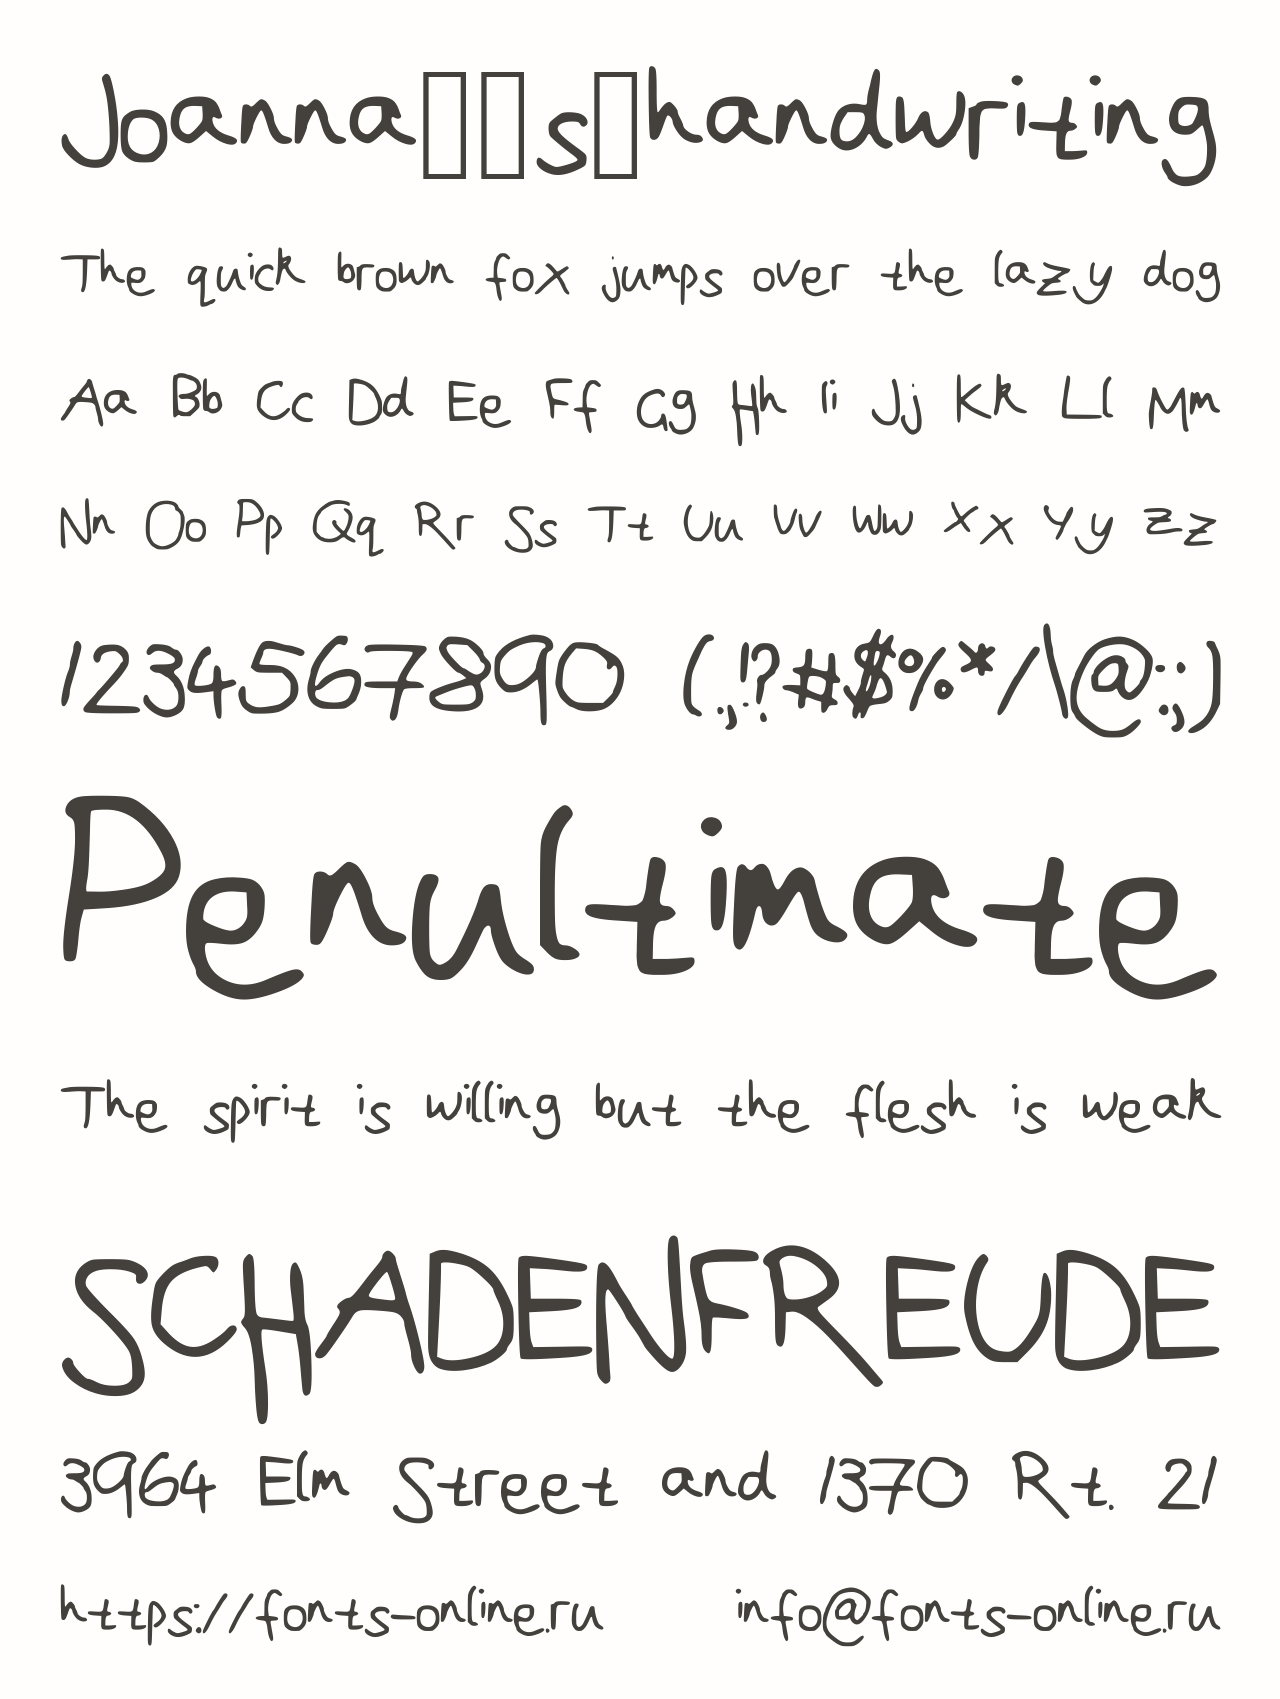 Joanna▯▯s▯handwriting
The quick brown fox jumps over the lazy dog
Aa Bb Cc Dd Ee Ff Gg Hh Ii Jj Kk Ll Mm
Nn Oo Pp Qq Rr Ss Tt Uu Vv Ww Xx Yy Zz
1234567890 (.,!?#$%*/\@:;)
Penultimate
The spirit is willing but the flesh is weak
SCHADENFREUDE
3964 Elm Street and 1370 Rt. 21
https://fonts-online.ru info@fonts-online.ru